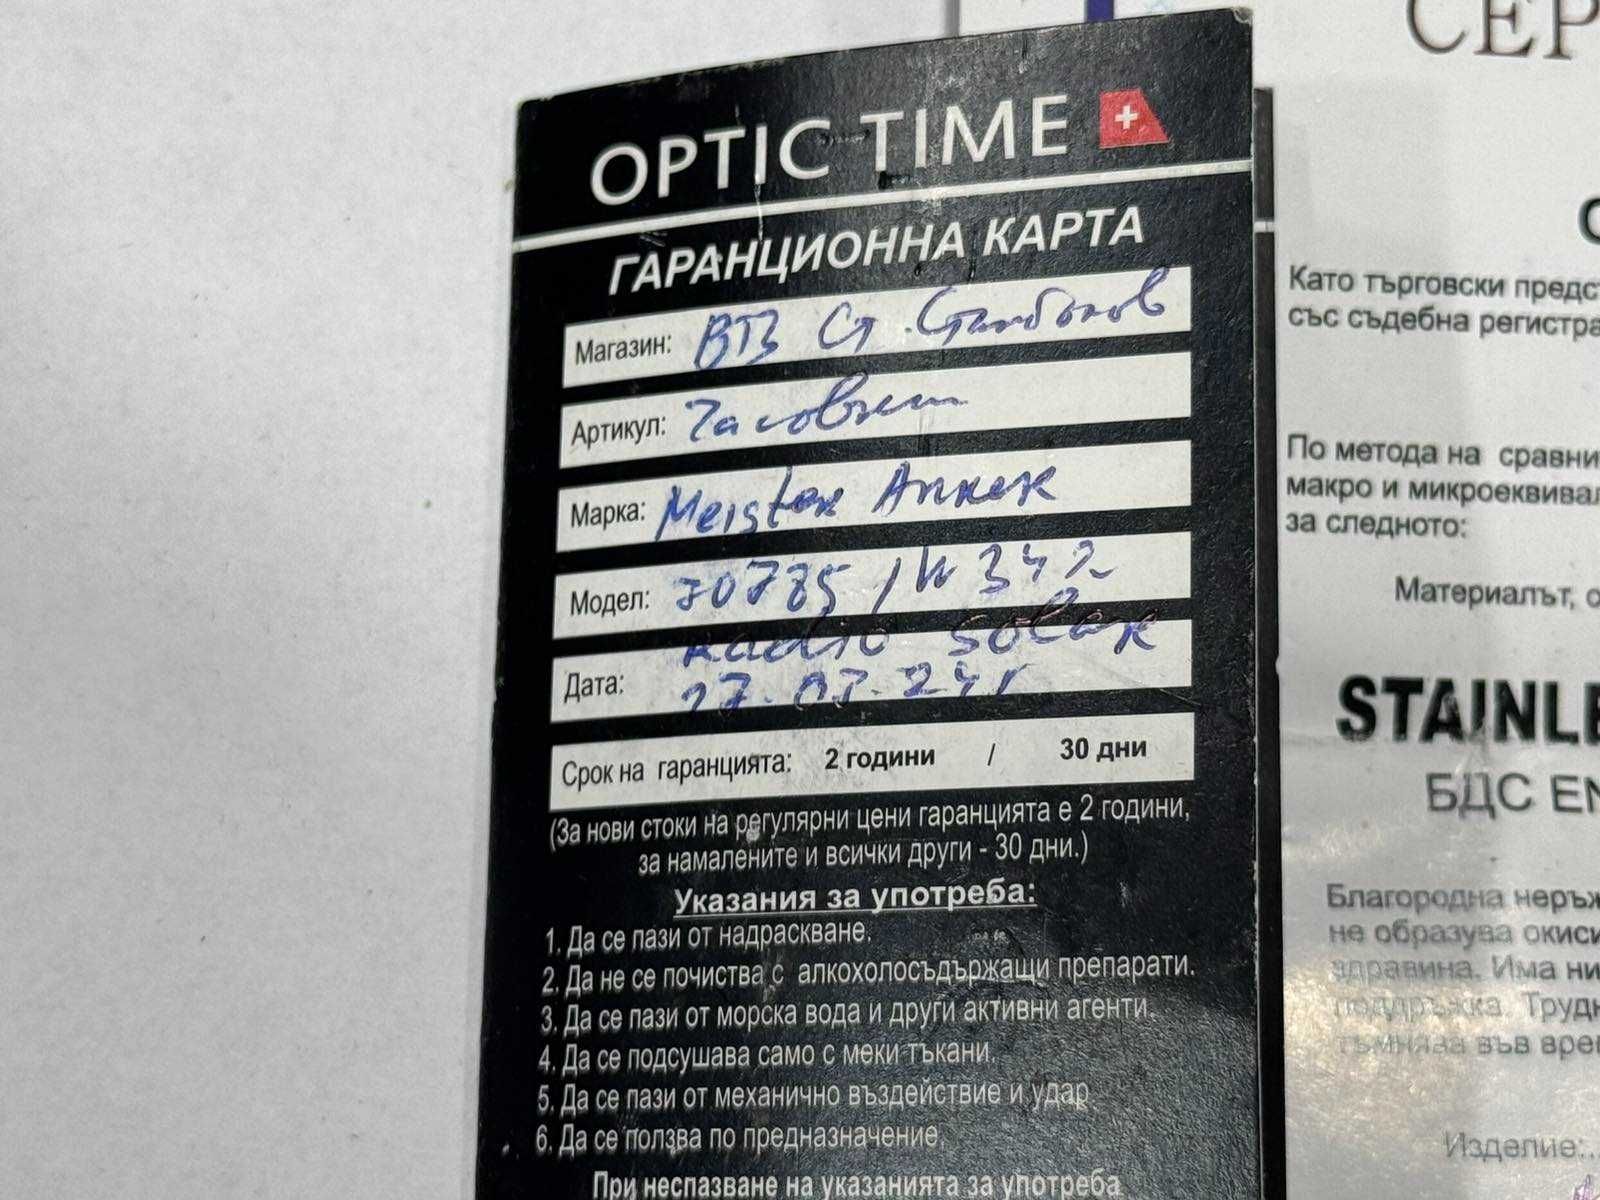 OPTIC TIME
ГАРАНЦИОННА КАРТА
Магазин: ВТЗ Ст. Стамболов
Артикул: Часовник
Марка: Meister Anker
Модел: 70785 / W 342
Radio Solar
Дата: 27.07.24г
Срок на гаранцията: 2 години / 30 дни
(За нови стоки на регулярни цени гаранцията е 2 години,
за намалените и всички други - 30 дни.)
Указания за употреба:
1. Да се пази от надраскване.
2. Да не се почиства с алкохолосъдържащи препарати.
3. Да се пази от морска вода и други активни агенти.
4. Да се подсушава само с меки тъкани.
5. Да се пази от механично въздействие и удар.
6. Да се ползва по предназначение.
При неспазване на указанията за употреба
СЕР
Като търговски предс
със съдебна регистра
По метода на сравни
макро и микроеквивал
за следното:
Материалът, о
STAINLE
БДС EN
Благородна неръж
не образува окиси
здравина. Има ни
поддръжка. Трудн
тъмнява във врем
Изделие:..